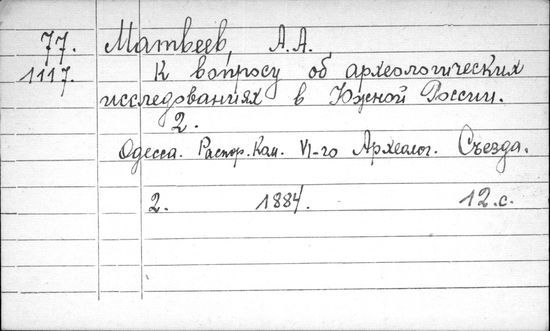 77. Матвеев, А.А.
1117. К вопросу об археологических
исследованиях в Южной России.
2.
Одесса. Распор. Ком. VI-го Археолог. Съезда.
2. 1884. 12.с.